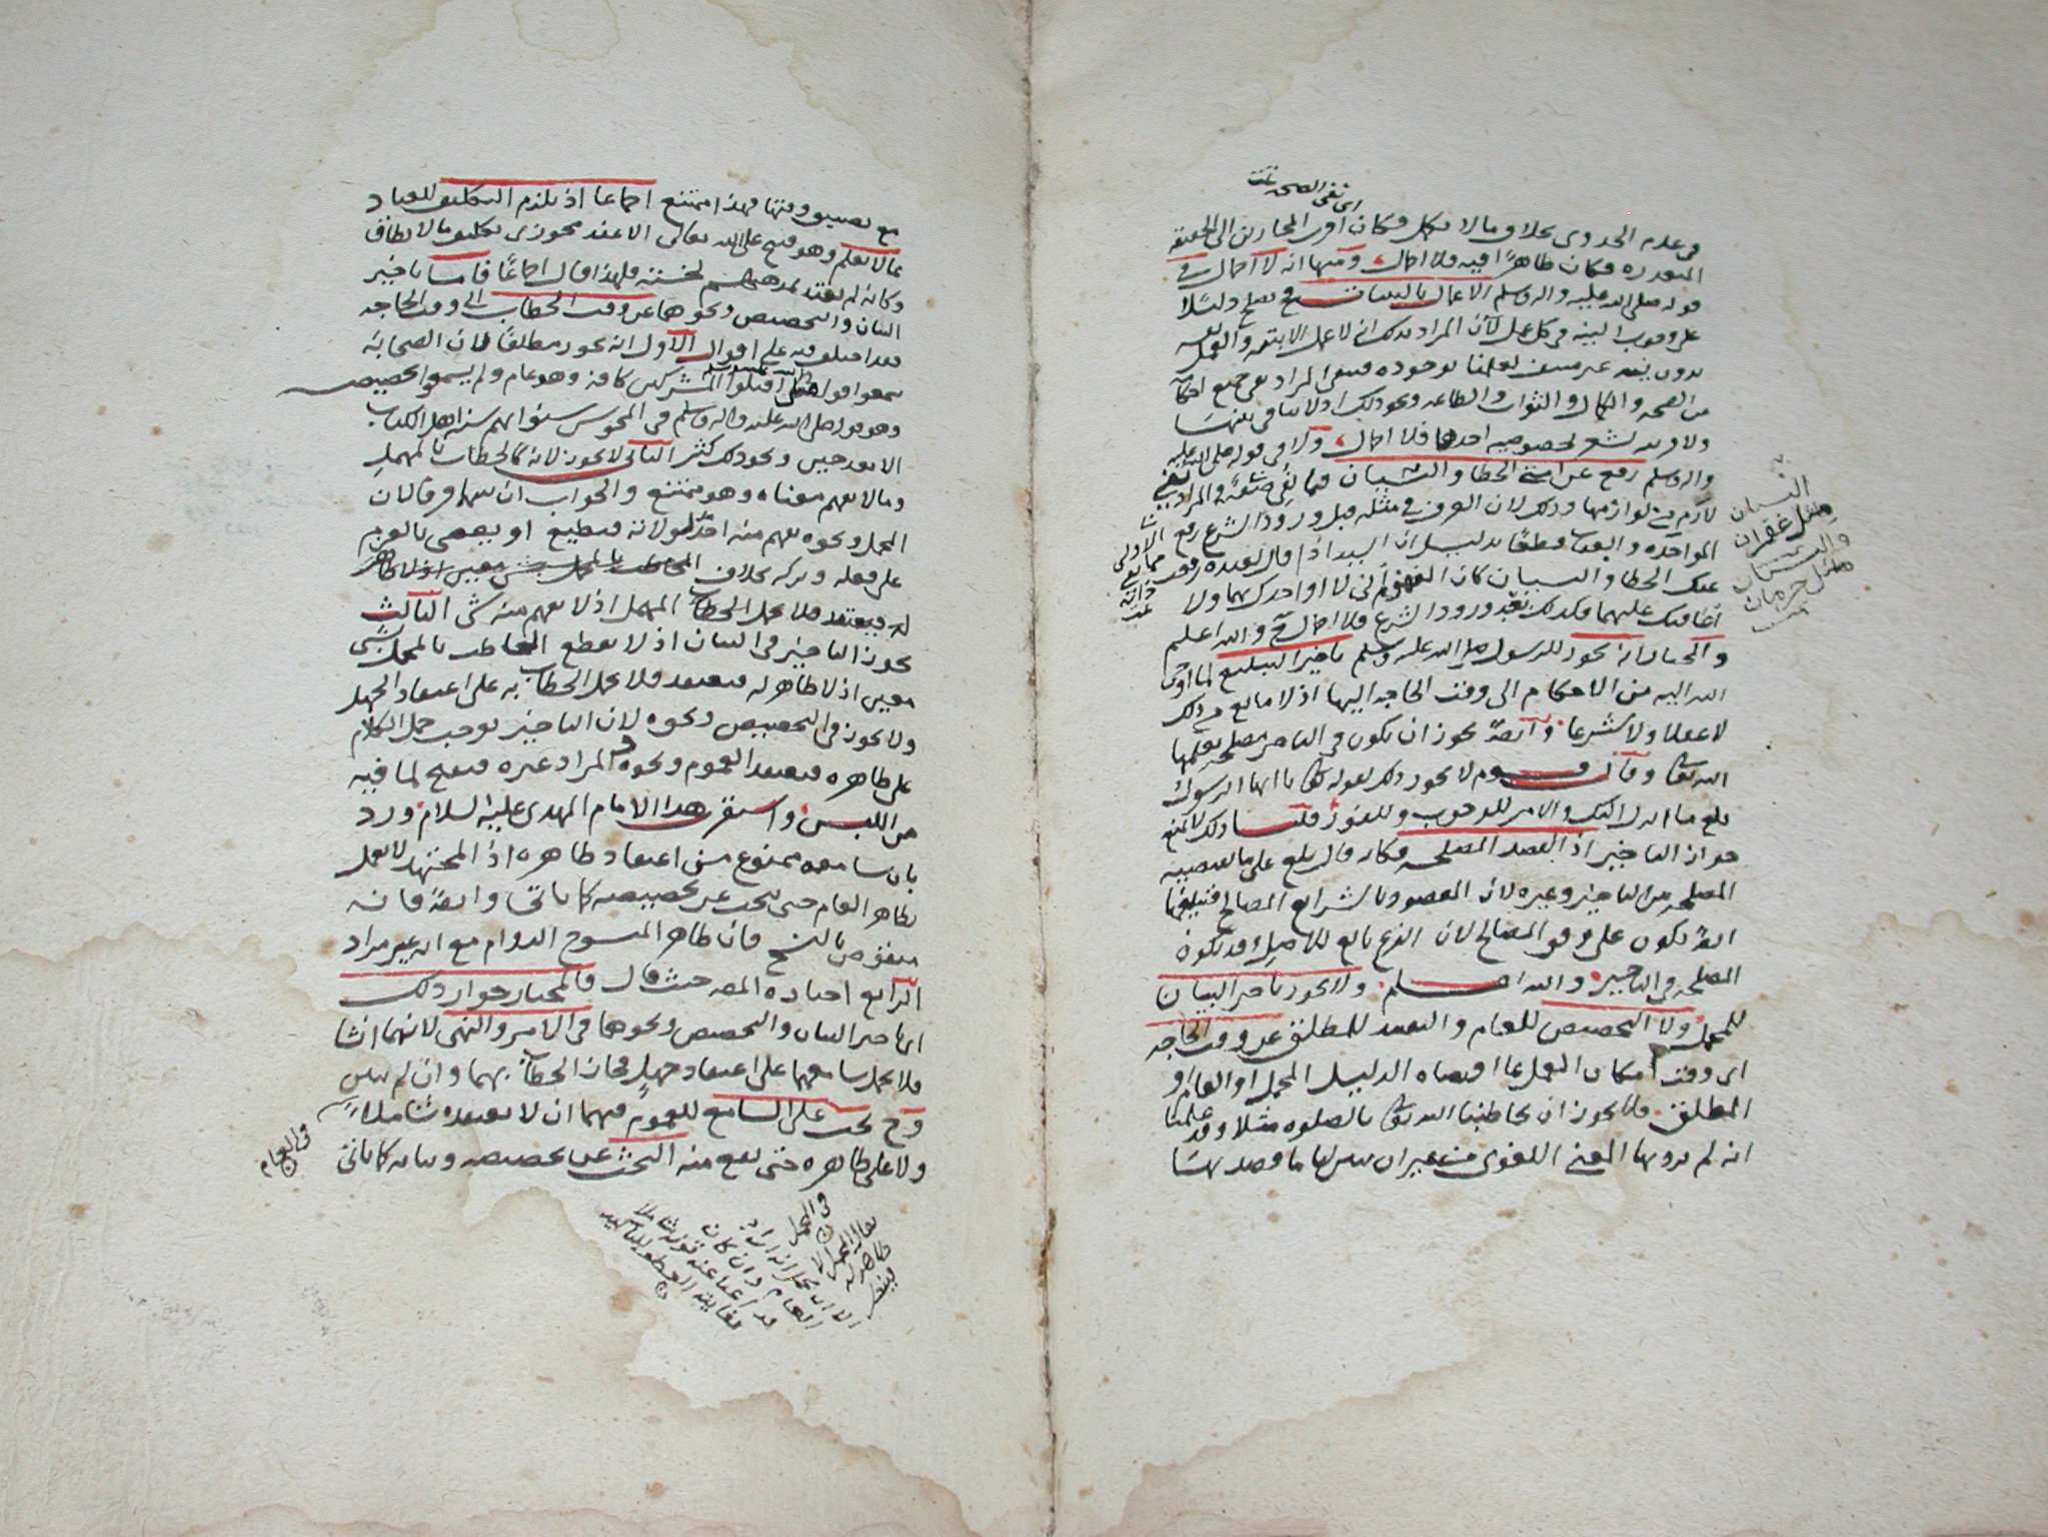 اي نفي الصحة تمت
في عدم الجدوى بخلاف ما لا يكمل فكان اقرب المجازين الى الحقيقة
المتعذره فكان ظاهرًا فيه فلا اجمال ومنها انه لا اجمال في
قوله صلى الله عليه واله وسلم الاعمال بالنيات فيصلح دليلا
على وجوب النية في كل عمل لأن المراد بذلك انه لا عمل الا بنية
بدون نية
من الصحة والكمال والثواب والطاعة ونحو ذلك اذ لا تنافي بينها
ولا قرينه تشعر بخصوصية احدها فلا اجمال ولا في قوله صلى الله عليه
واله وسلم رفع عن امتي الخطأ والنسيان
لازم من لوازمها وذلك لان العرف في مثله قبل ورود الشرع رفع
المواخذه والعقاب قطعًا بدليل ان السيد اذا قال لعبده رفعت
عنك الخطا والنسيان كان المفهوم اني لا اواخذك بهما ولا
اعاقبك عليهما فكذلك بعد ورود الشرع فلا اجمال والله اعلم
والمختار انه يجوز للرسول صلى الله عليه وسلم تاخير التبليغ لما اوحي
الله اليه من الاحكام الى وقت الحاجه اليها اذ لا مانع من ذلك
لا عقلا ولا شرعا وايضًا يجوز ان يكون في التاخير مصلحه يعلمها
الله تعالى وقال قوم لا يجوز ذلك لقوله تعالى يا ايها الرسول
بلغ ما انزل اليك والامر للوجوب وللفور قلنا ذلك لا يمنع
جواز التاخير اذ القصد المصلحه فكانه قال بلغ على ما تقتضيه
المصلحه من التاخير وغيره لان المقصود بالشرايع المصالح فتبليغها
ايضًا يكون على وفق المصالح لان الفرع تابع للاصل وقد تكون
المصلحه في التاخير والله اعلم ولا يجوز تاخير البيان
للمجمل ولا التخصيص للعام والتقييد للمطلق عن وقت الحاجه
اي وقت امكان العمل بما اقتضاه الدليل المجمل او العام او
المطلق فلا يجوز ان يخاطبنا الله تعالى بالصلوه مثلا وقد علمنا
انه لم يرد بها المعنى اللغوي من غير ان يبين لنا ما قصد بها
النسيان
مثل غفران
والنسيان
مثل حرمان
تمت
مع تضييق وقتها فهذا ممتنع اجماعا اذ يلزم التكليف للعباد
بما لا يعلم وهو قبيح على الله تعالى الا عند مجوزي تكليف ما لا يطاق
وكانه لم يعتد بمذهبهم لخسته فلهذا قال اجماعًا فاما تاخير
البيان والتخصيص ونحوهما عن وقت الخطاب الى وقت الحاجه
فقد اختلف فيه على اقوال الاول انه يجوز مطلقًا لان الصحابه
سمعوا قوله تعالى اقتلوا المشركين كافة وهو عام ولم يسمعوا تخصيصه
وهو قوله صلى الله عليه واله وسلم في المجوس سنوا بهم سنة اهل الكتاب
الا بعد حين ونحو ذلك كثير الثاني لا يجوز لانه كالخطاب بالمهمل
وما لا يفهم معناه وهو ممتنع والجواب ان بينهما فرقا لان
المجمل ونحوه يفهم منه فيطيع او يعصي بالعزم
على فعله وتركه بخلاف
المهمل اذ لا يفهم منه شي الثالث
يجوز التاخير في البيان اذ لا يقطع المخاطب بالمجمل بشي
معين اذ لا ظاهر له فيعتقد فلا يحمل الخطاب به على اعتقاد الجهل
ولا يجوز في التخصيص ونحوه لان التاخير يوجب حمل الكلام
على ظاهره فيعتقد العموم ونحوه والمراد غيره فيقبح لما فيه
من اللبس واستقرى هذا الامام المهدي عليه السلام ورد
بان سامعه ممنوع من اعتقاد ظاهره اذ المجتهد لا يعمل
بظاهر العام حتى يبحث عن تخصيصه كما ياتي وايضًا فانه
منقوض بالنسخ فان ظاهر المنسوخ الدوام مع انه غير مراد
الرابع اختاره المص حيث قال فالمختار جواز ذلك
اي تاخير البيان والتخصيص ونحوهما في الامر والنهي لانهما انشا
فلا يحمل سامعهما على اعتقاد جهل فجاز الخطاب بهما وان لم يبين
وح يجب على السامع للعموم فيهما ان لا يعتقده شاملا
ولا على ظاهره حتى يقع منه البحث عن تخصيصه وبيانه كما ياتي
في العام
في المجمل
يقال المجمل لا
ظاهر له
فينظر